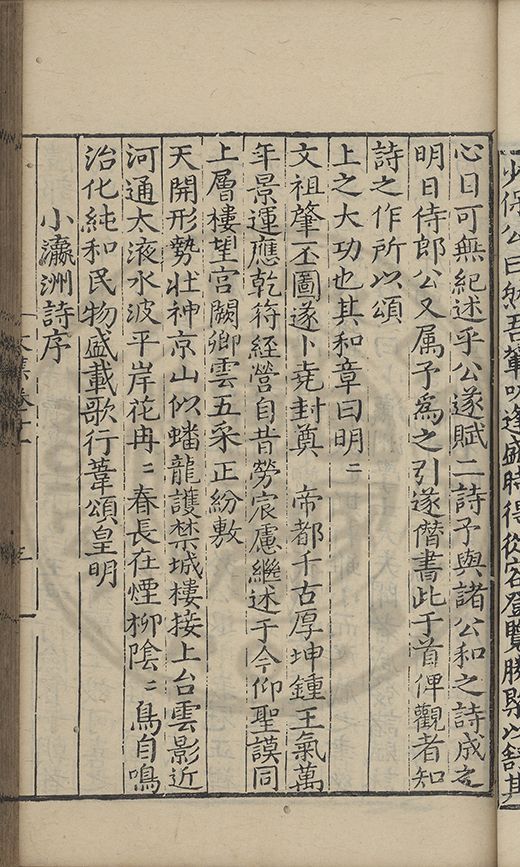 少保公曰然吾輩叨逢盛時得從容登覽勝槩以舒其
心日可無紀述乎公遂賦二詩予與諸公和之詩成之
明日侍郎公又属予為之引遂僭書此于首俾觀者知
詩之作所以頌
上之大功也其和章曰明〻
文祖肇丕圖遂卜堯封奠　帝都千古厚坤鍾王氣萬
年景運應乾符經營自昔勞宸慮繼述于今仰聖謨同
上層樓望宮闕卿雲五采正紛敷
天開形勢壯神京山似蟠龍護禁城樓接上台雲影近
河通太液水波平岸花冉〻春長在煙柳陰〻鳥自鳴
治化純和民物盛載歌行葦頌皇明
小瀛洲詩序